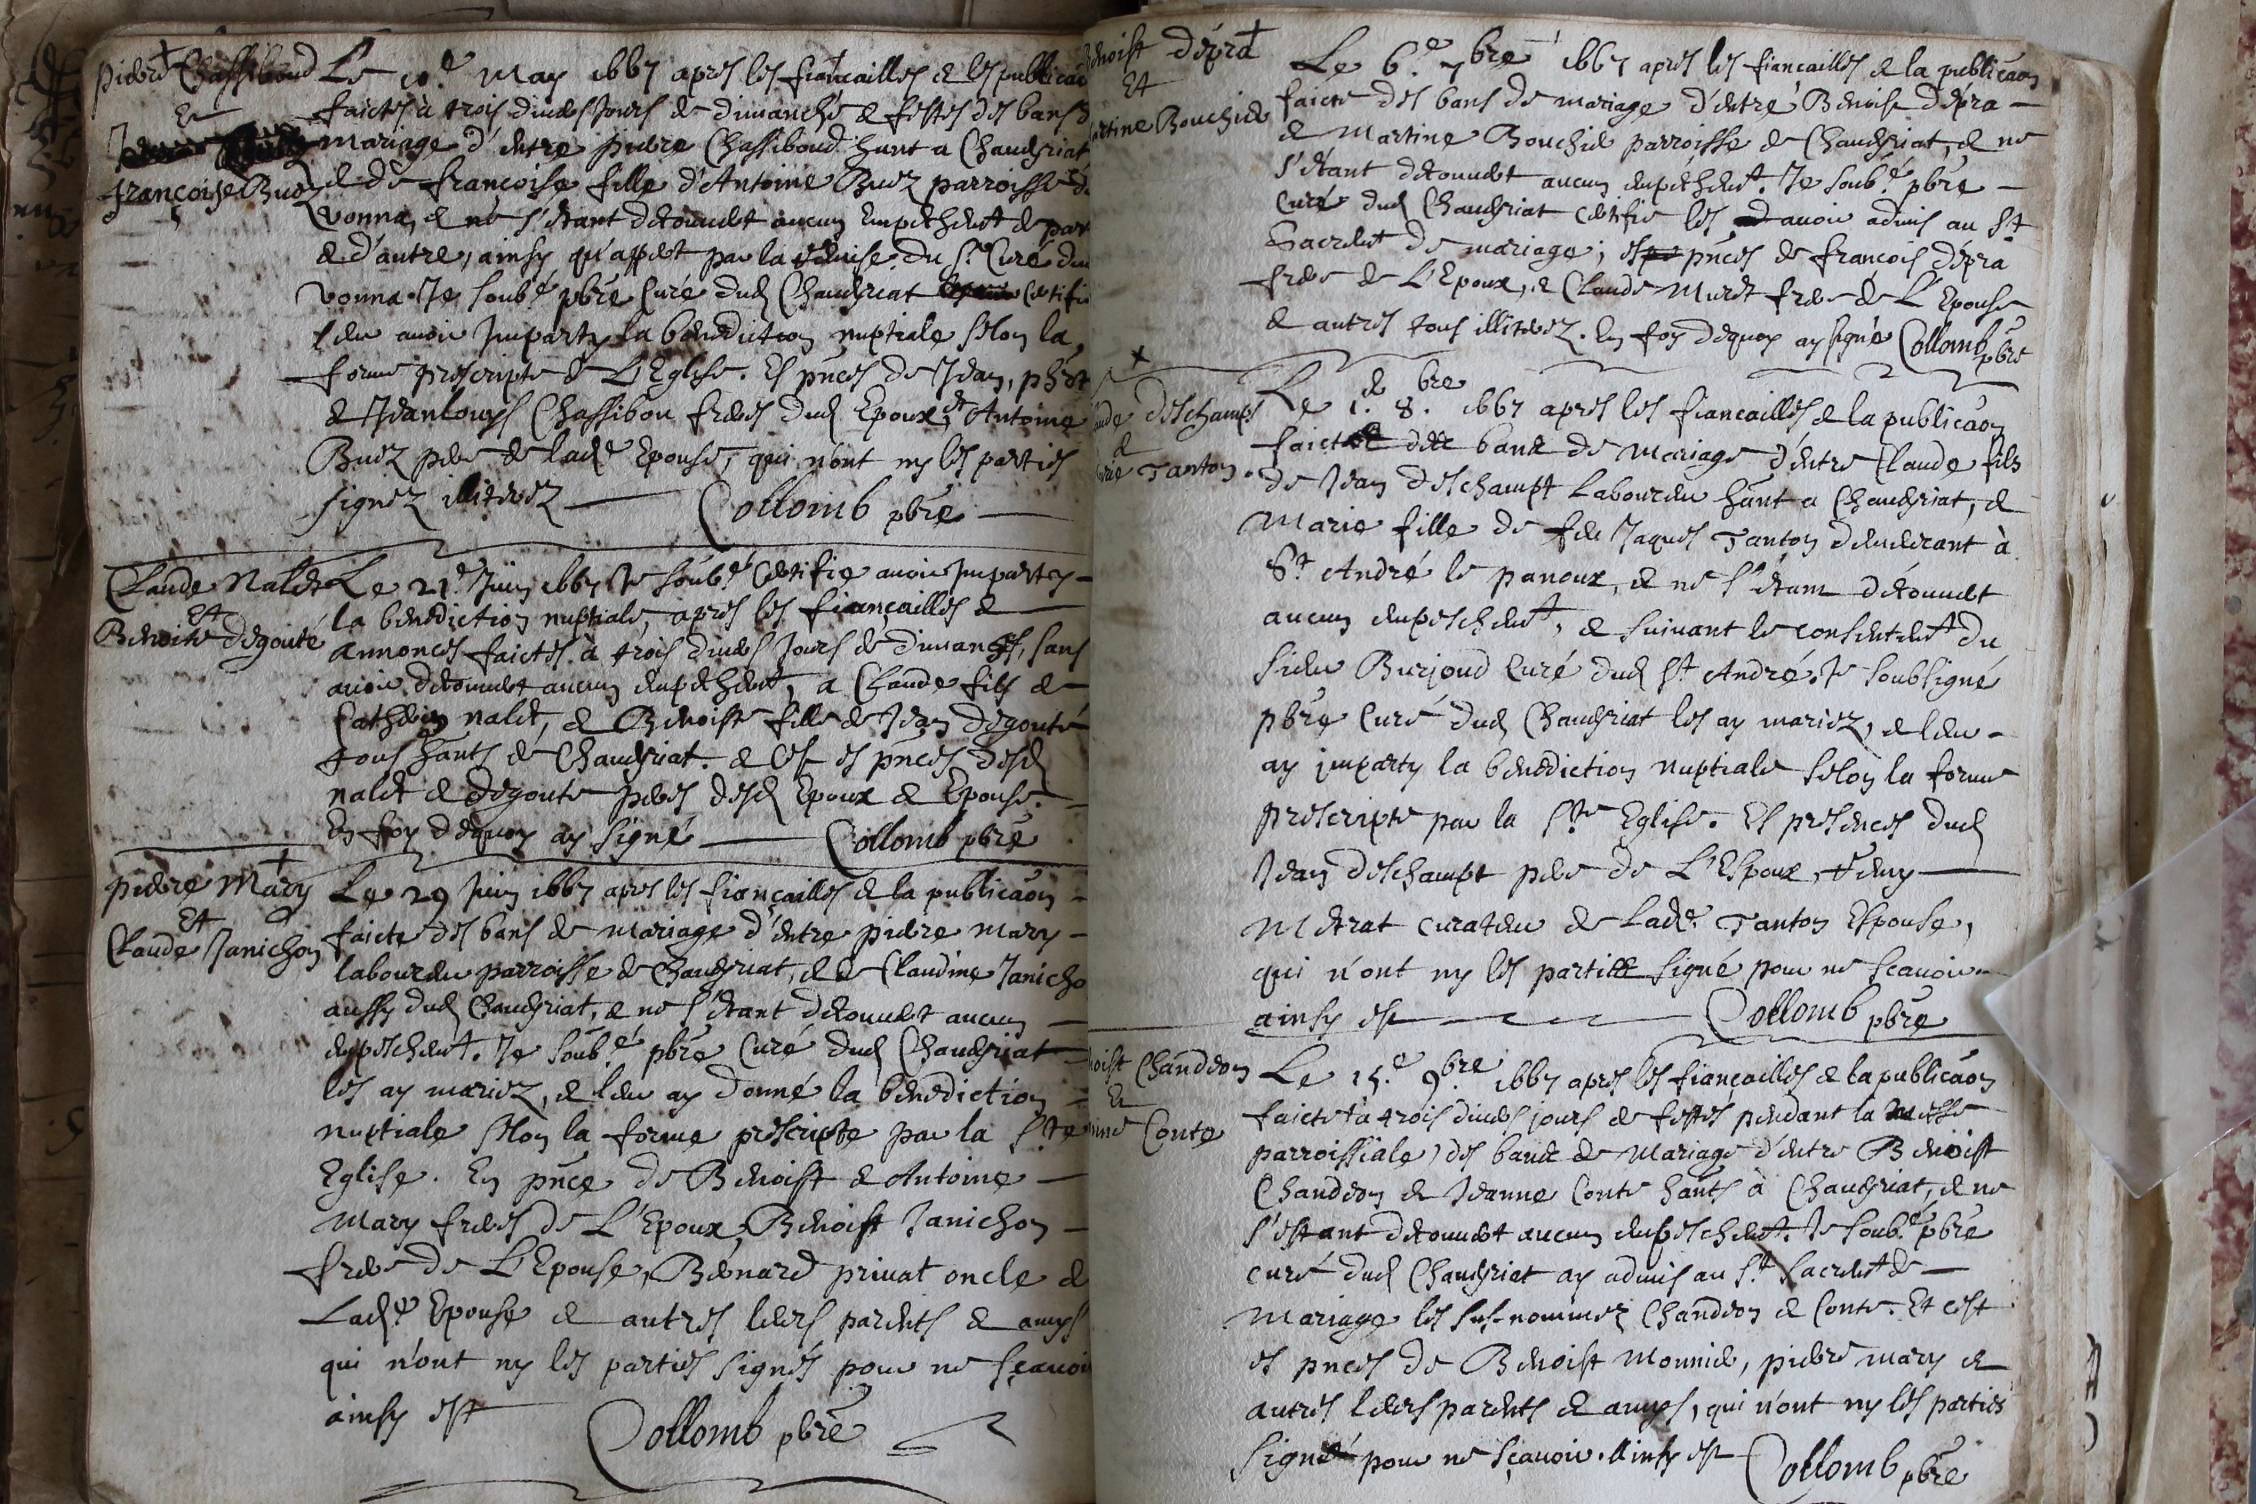 Pierre Chassiboud
Et
françoise Buez
Le 10e May 1667 apres les fiancailles & les publicaõ
faictes à trois divers Jours de dimanche & festes des bans d
mariage d'entre pierre Chassiboud hant a Chaveyriat
& de francoise fille d'Antoine Buez parroisse d
vonna, & ne s'étant decouvert aucun Empechemt de part
& d'autre, ainsy qu'appert par la remise du Sr Curé dud
vonna. Je soubé pbre Curé dud Chaveyriat certifie
leur avoir Imparty la benediction nuptiale selon la
forme prescripte de L'Eglise. Es pñces de Jean, phert
& Jeanlouys Chassibou freres dud Epoux, et Antoine
Buez pere de ladte Epouse, qui n'ont ny les parties
signez illiterez Collomb pbre
Claude Nalet
Et
Benoite degouté
Le 21e Juin 1667 Je soubé certifie avoir Imparty
la benediction nuptiale, apres les fiançailles &
annonces faictes à trois divers Jours de dimanches, sans
avoir decouvert aucun empechemt, a Claude fils de
Catherin nalet, & Benoiste fille de Jean degouté
tous hants de Chaveyriat. & Cest es pñces desd
nalet & degoute peres desd Epoux & Epouse.
En foy dequoy ay signé Collomb pbre
pierre Mary
Et
Claude Janichon
Le 29 Juin 1667 apres les fiançailles & la publicaõn
faicte des bans de mariage d'entre pierre mary
laboureur parroisse de Chaveyriat, & de Claudine Janicho
aussy dud Chaveyriat, & ne s'étant decouvert aucun
empeschemt. Je soubé pbre Curé dud Chaveyriat
les ay mariez, & leur ay donné la benediction
nuptiale selon la forme prescripte par la Ste
Eglise. En pñce de Benoist & Antoine
Mary freres de L'Epoux, Benoist Janichon
frere de L'Epouse, Bernard privat oncle de
Ladte Epouse & autres leurs parents & amys
qui n'ont ny les parties signés pour ne sçavoir
ainsy est
Collomb pbre
enoist dépra
Et
artine Bouchie
Le 6e 7bre 1667 apres les fiancailles & la publicaõn
faicte des bans de mariage d'entre Benoist dépra
& Martine Bouchie parroisse de Chaveyriat, & ne
s'étant decouvert aucun empechemt. Je soubé pbre
Curé dud Chaveyriat certifie les avoir admis au St
Sacremt de mariage; es pñces de francois dépra
frere de L'Epoux, & Claude Muret frere de L'Epouse
& autres tous illiterez. En foy dequoy ay signé Collomb pbre
aude deschamps
&
arie Tanton.
Le 1er 8bre 1667 apres les fiancailles & la publicaõn
faicte des bans de Mariage d'entre Claude fils
de Jean deschampt Laboureur hant a Chaveyriat, &
Marie fille de feu Jaques Tanton demeurant à
St André le panoux, & ne s'étant découvert
aucun empeschemt, & suivant le consentemt du
sieur Burjoud Curé dud St André. Je soubsigné
pbre Curé dud Chaveyriat les ay mariez, & leur
ay imparty la benediction nuptiale selon la forme
prescripte par la Ste Eglise. Es presences dud
Jean deschampt pere de L'Espoux,
Metrat curateur de Ladte Tanton Espouse,
qui n'ont ny les parties signé pour ne sçavoir
ainsy est Collomb pbre
noist Chandeon
Et
anne Conte
Le 15e 9bre 1667 apres les fiançailles & la publicaõn
faicte à trois divers jours de festes, pendant la Messe
parroissiale, des bans de Mariage d'entre Benoist
Chandeon & Jeanne Conte hants à Chaveyriat, & ne
s'estant decouvert aucun empeschemt. Je soubé pbre
curé dud Chaveyriat ay admis au St Sacremt de
Mariage les sus-nommez Chandeon & Conte. Et cest
es pñces de Benoist Monnier, pierre mary &
autres leurs parents & amys, qui n'ont ny les parties
signé pour ne sçavoir. Ainsy est Collomb pbre